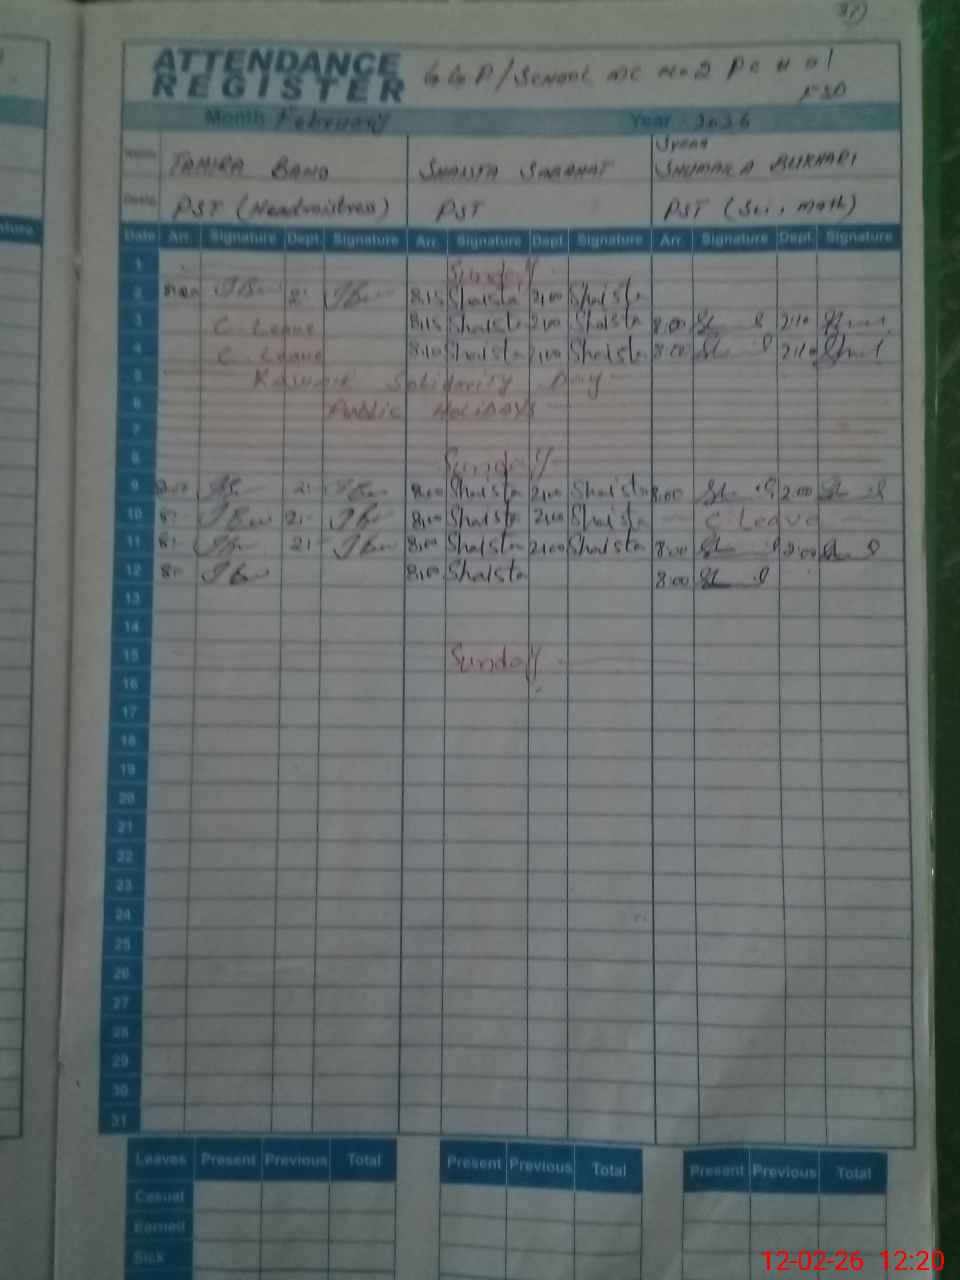 ATTENDANCE REGISTER
School MC No 2
Month February Year 2026
Name TAHIRA BANO SHAISTA SABAHAT Syeda SHUMAILA BUKHARI
PST (Headmistress) PST PST (Sci, math)
Date Arr. Signature Dept. Signature Arr. Signature Dept. Signature Arr. Signature Dept. Signature
1 Sunday
2 8:15 Shaista 2:00 Shaista
3 C. Leave 8:15 Shaista 2:00 Shaista 8:00 2:10
4 C. Leave 8:10 Shaista 2:00 Shaista 8:00 2:10
5 Kashmir Solidarity Day
6 Public Holidays
7
8 Sunday
9 2:- 8:00 Shaista 2:00 Shaista 8:00 2:00
10 8:- 2:- 8:00 Shaista 2:00 Shaista C. Leave
11 8:- 2:- 8:00 Shaista 2:00 Shaista 8:00 2:00
12 8:- 8:00 Shaista 8:00
13
14
15 Sunday
16
17
18
19
20
21
22
23
24
25
26
27
28
29
30
31
Leaves Present Previous Total Present Previous Total Present Previous Total
Casual
Earned
Sick
12-02-26 12:20